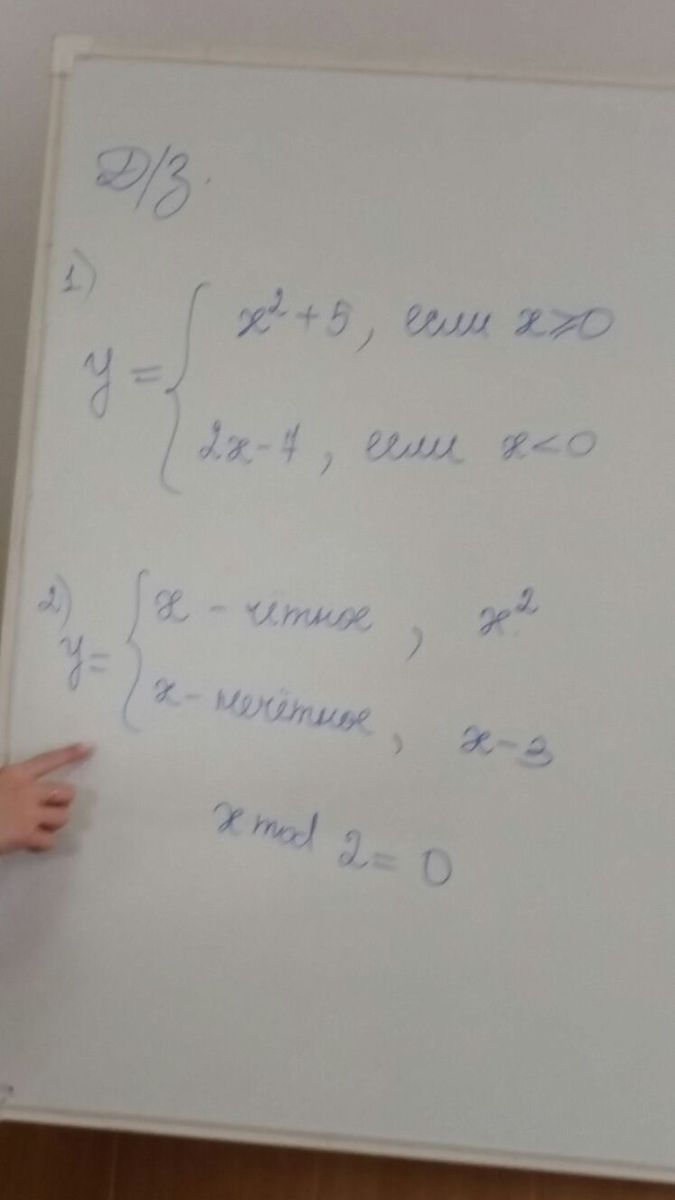 Д/З.
1)
y = { x² + 5, если x ⩾ 0
2x - 7, если x < 0
2)
y = { x - четное, x²
x - нечётное, x - 3
x mod 2 = 0